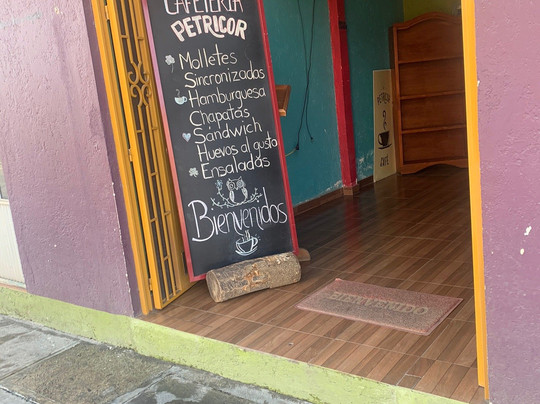 CAFETERÍA
PETRICOR
Molletes
Sincronizadas
Hamburguesa
Chapatas
Sándwich
Huevos al gusto
Ensaladas
Bienvenidos
PETRICOR
CAFÉ
BIENVENIDOS